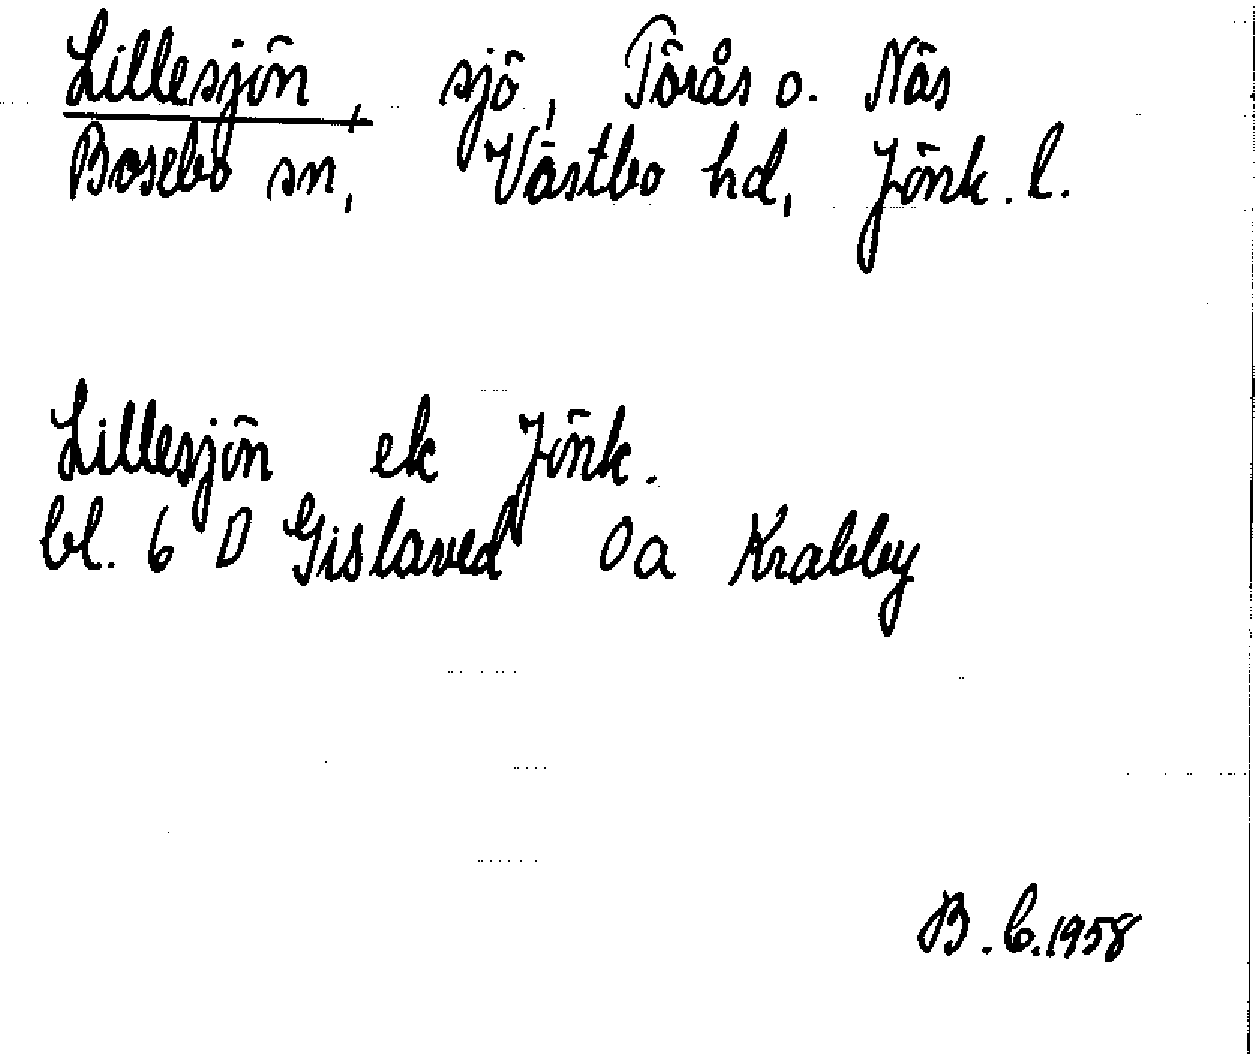 Lillesjön, sjö, Törås o. Näs
Bosebo sn, Västbo hd, Jönk. l.
Lillesjön ek Jönk.
bl. 6 D Gislaved 0a Krabby
B. C. 1958